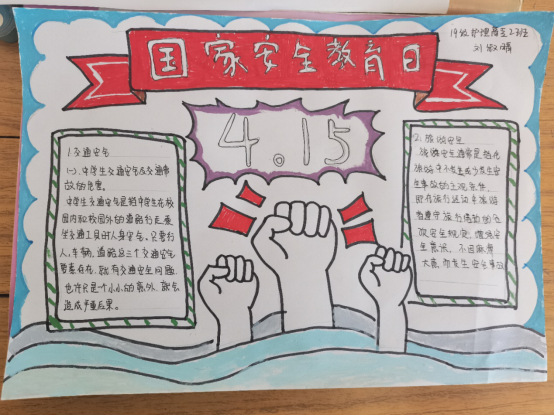 19级护理高至2班
国家安全教育日
4.15
1.交通安全
(一).中学生交通安全及交通事
故的危害.
中学生交通安全是指中学生在校
园内和校园外的道路行走、乘
坐交通工具时人身安全。只要行
人,车辆,道路这三个交通安全
要素存在,就有交通安全问题,
也许只是一个小小的意外,就会
造成严重后果。
2.旅游安全
旅游安全通常是指在
旅游中不发生或少发生安
全事故的主观条件,
即在旅行过程中旅游
者遵守旅行活动的各
项安全规定,增强安
全意识,不因麻痹
大意,而发生安全事故